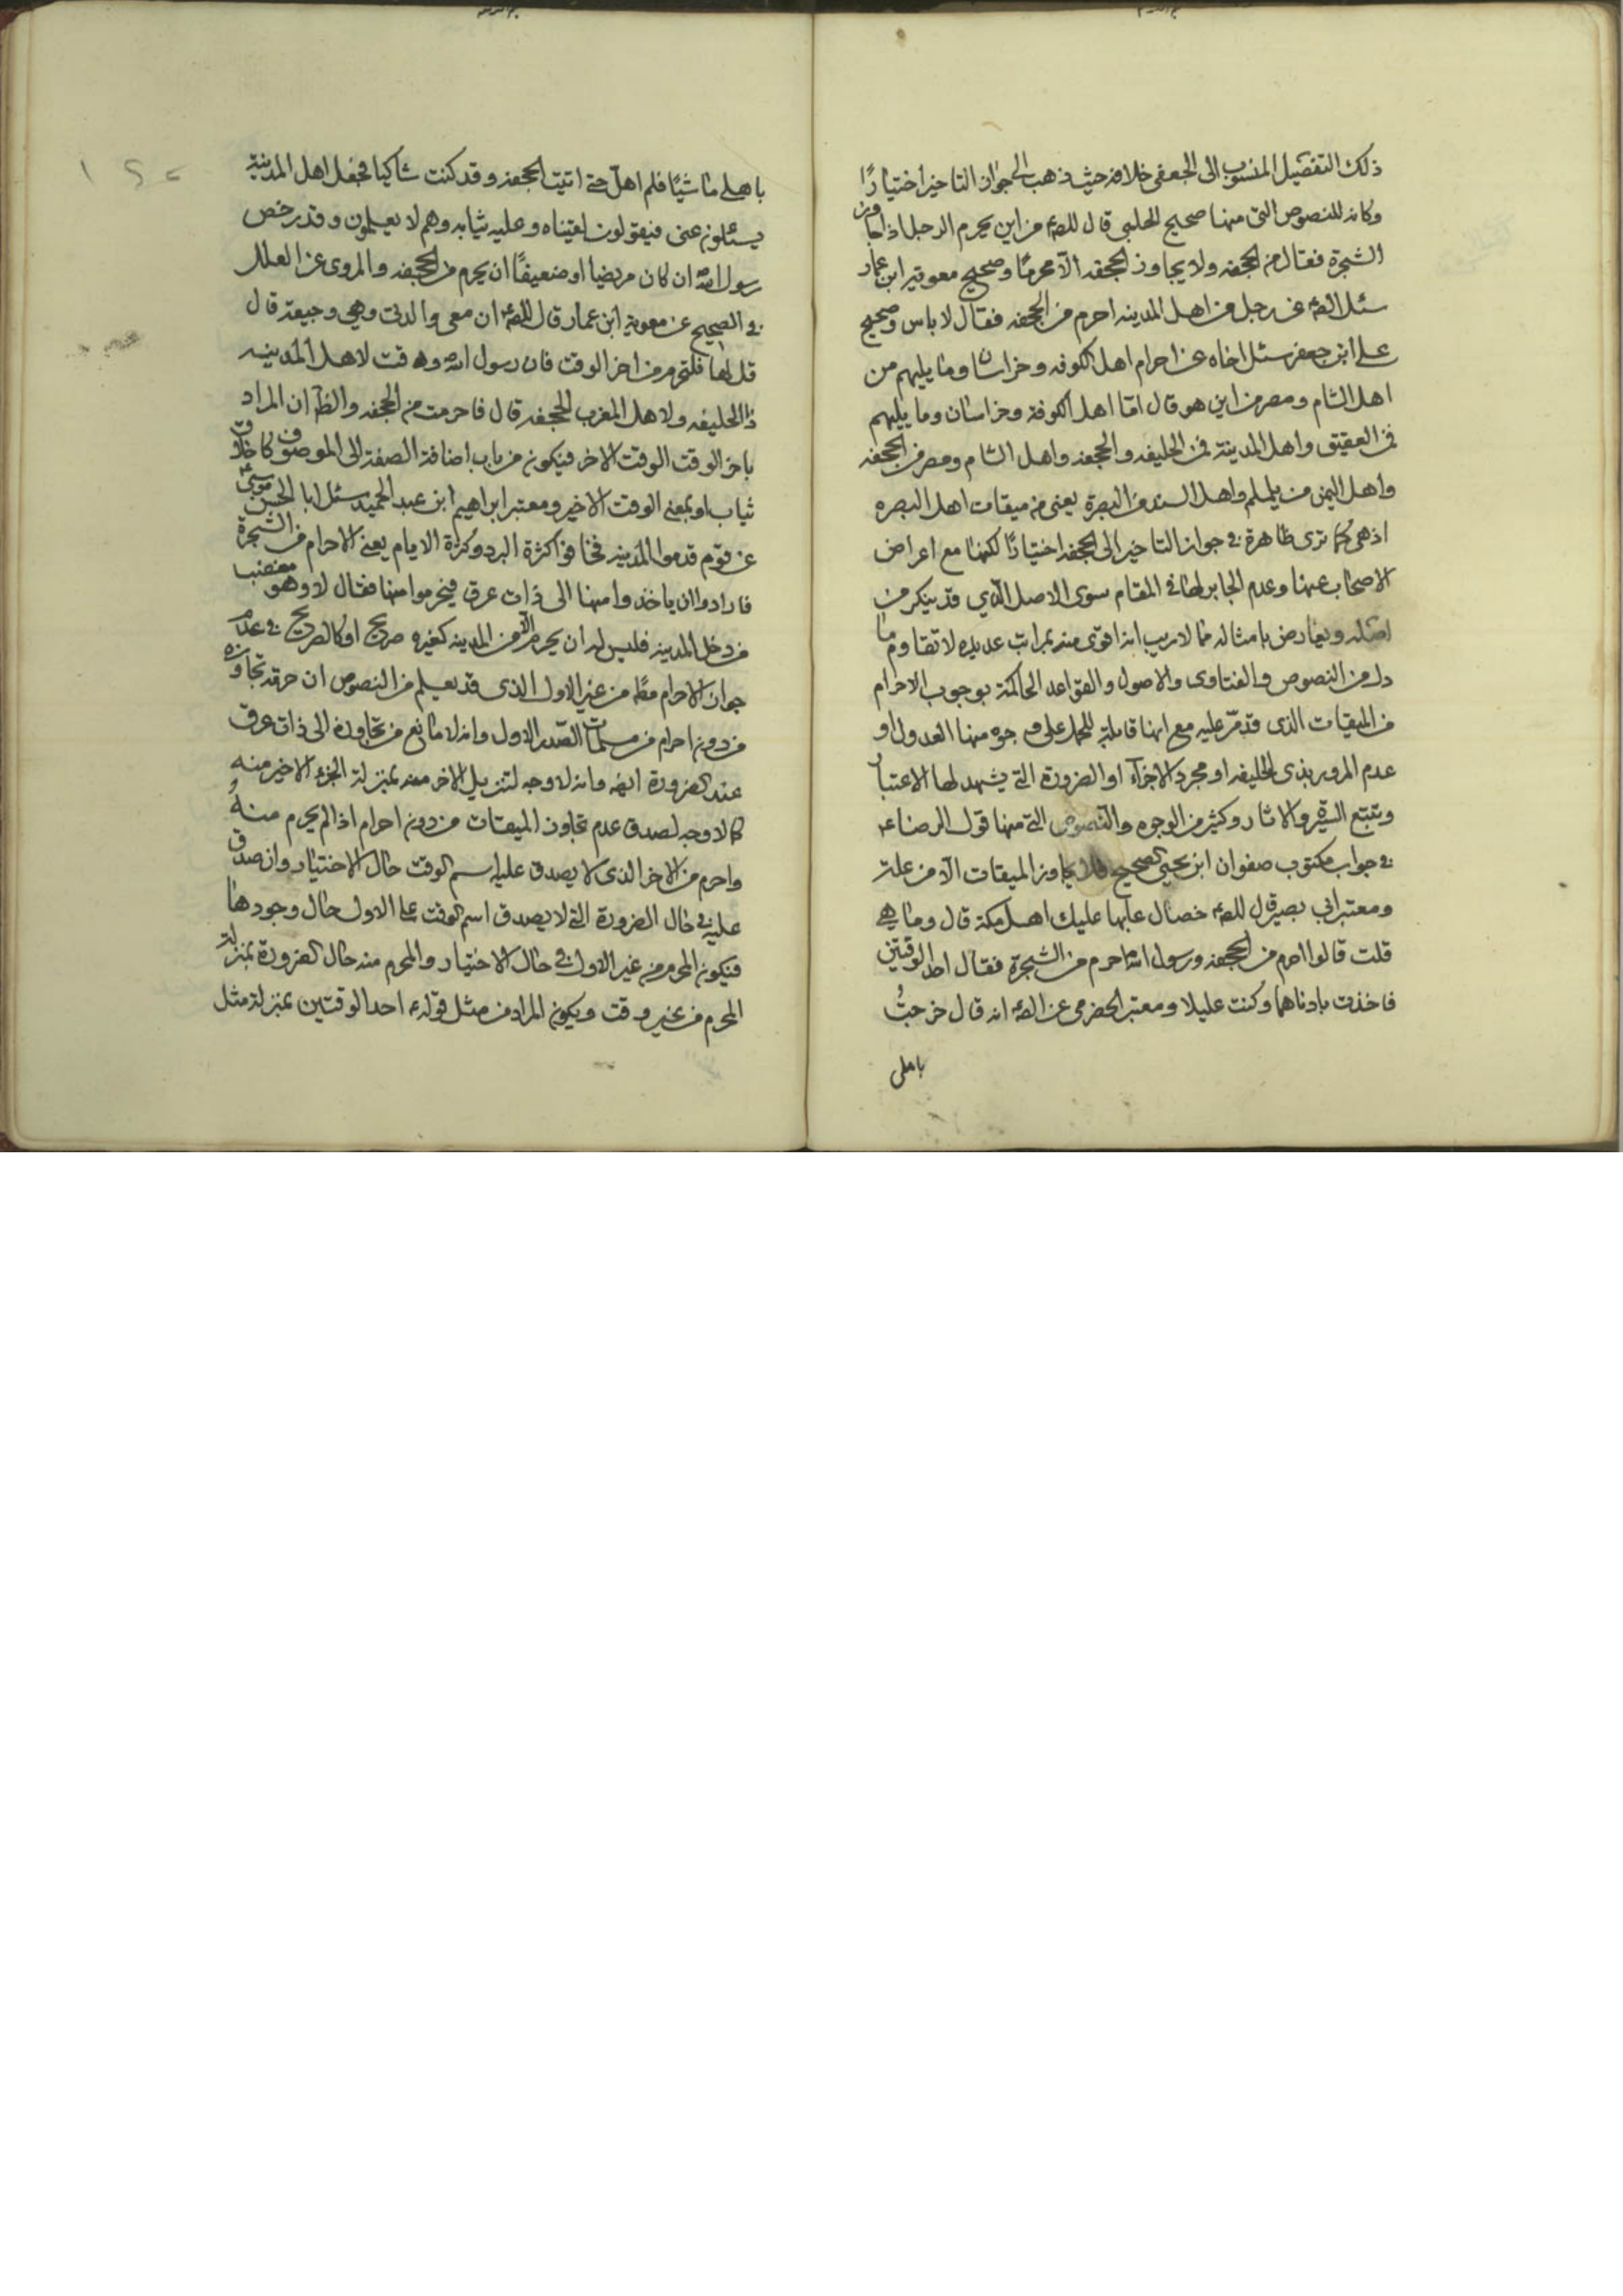 ذلك التفصيل المنسوب الى الجعفى خلافه حيث ذهب الى جواز التاخير اختيارًا
وكانه للنصوص التى منها صحيح الحلبى قال للصم من اين يحرم الرجل اذا جاوز
الشجرة فقال من الجحفه ولا يجاوز الجحفه الّا محرمًا وصحيح معويه ابن عمار
سئل الصم عن رجل من اهل المدينه احرم من الجحفه فقال لا باس وصحيح
على ابن جعفر سئل اخاه عن احرام اهل الكوفه وخراسان وما يليهم من
اهل الشام ومصر من اين هو قال امّا اهل الكوفة وخراسان وما يليهم
فمن العقيق واهل المدينة فمن الحليفه والجحفه واهل الشام ومصر من الجحفه
واهل اليمن من يلملم واهل السند من البصرة يعنى من ميقات اهل البصره
اذ هى كما ترى ظاهرة فى جواز التاخير الى الجحفه اختيارًا لكنها مع اعراض
الاصحاب عنها وعدم الجابر لها فى المقام سوى الاصل الّذي قد ينكر من
اصله ويعارض بامثاله مما لا ريب انه اقوى منه بمراتب عديده لا تقاوم ما
دل من النصوص والفتاوى والاصول والقواعد الحاكمة بوجوب الاحرام
من الميقات الذى قد مرّ عليه مع انها قابلة للحمل على وجوه منها العدول او
عدم المرور بذى الحليفه او مجرد الاجزآء او الضرورة التى يشهد لها الاعتبار
وتتبع السيرة والاثار وكثير من الوجوه والنصوص التى منها قول الرضا عم
فى جواب مكتوب صفوان ابن يحيى الصحيح فلا يجاوز الميقات الّا من علة
ومعتبر ابى بصير قال للصم خصال عابها عليك اهل مكة قال وما هى
قلت قالوا احرم من الجحفه ورسول الله احرم من الشجرة فقال احد الوقتين
فاخذت بادناهما وكنت عليلا ومعتبر الحضرمى عن الصم انه قال خرجتُ
باهلى
باهلى ماشيًا فلم اهلّ حتى اتيت الجحفه وقد كنت شاكيا فجعل اهل المدينة
يسئلون عنى فيقولون لقيناه وعليه ثيابه وهم لا يعلمون وقد رخص
رسول الله ان كان مريضا او ضعيفًا ان يحرم من الجحفه والمروى عن العلل
فى الصحيح عن معوية ابن عمار قال للصم ان معى والدتى وهى وجيعة قال
قل لها فلتحرم من اخر الوقت فان رسول الله وقت لاهل المدينه
ذا الحليفه ولاهل المغرب الجحفه قال فاحرمت من الجحفه والظ ان المراد
باخر الوقت الوقت الاخر فيكون من باب اضافة الصفة الى الموصوف كاخلاق
ثياب او بمعنى الوقت الاخير ومعتبر ابراهيم ابن عبد الحميد سئل ابا الحسن موسى عم
عن قوم قدموا المدينه فخافوا كثرة البرد وكثرة الايام يعنى الاحرام من الشجرة
فارادوا ان ياخذوا منها الى ذات عرق فيحرموا منها فقال لا وهو مغضب
من دخل المدينه فليس له ان يحرم الّا من المدينه كغيره صريح او كالصريح فى عدم
جواز الاحرام مط من غير الاول الذى قد يعلم من النصوص ان حرمة تجاوزه
من دون احرام من مسلمات الصدر الاول وانه لا مانع من تجاوزه الى ذات عرق
عند الضرورة ايضا وانه لا وجه لتنزيل الاخر معه بمنزلة الجزء الاخير منه
كما لا وجه لصدق عدم تجاوز الميقات من دون احرام اذا لم يحرم منهُ
واحرم من الاخر الذى لا يصدق عليه اسم الوقت حال الاختيار وان صدق
عليه فى حال الضرورة التى لا يصدق اسم الوقت على الاول حال وجودها
فيكون المحرم من غير الاول فى حال الاختيار والمحرم منه حال الضرورة بمنزلة
المحرم من غير وقت ويكون المراد من مثل قوله عم احد الوقتين بمنزلة مثل